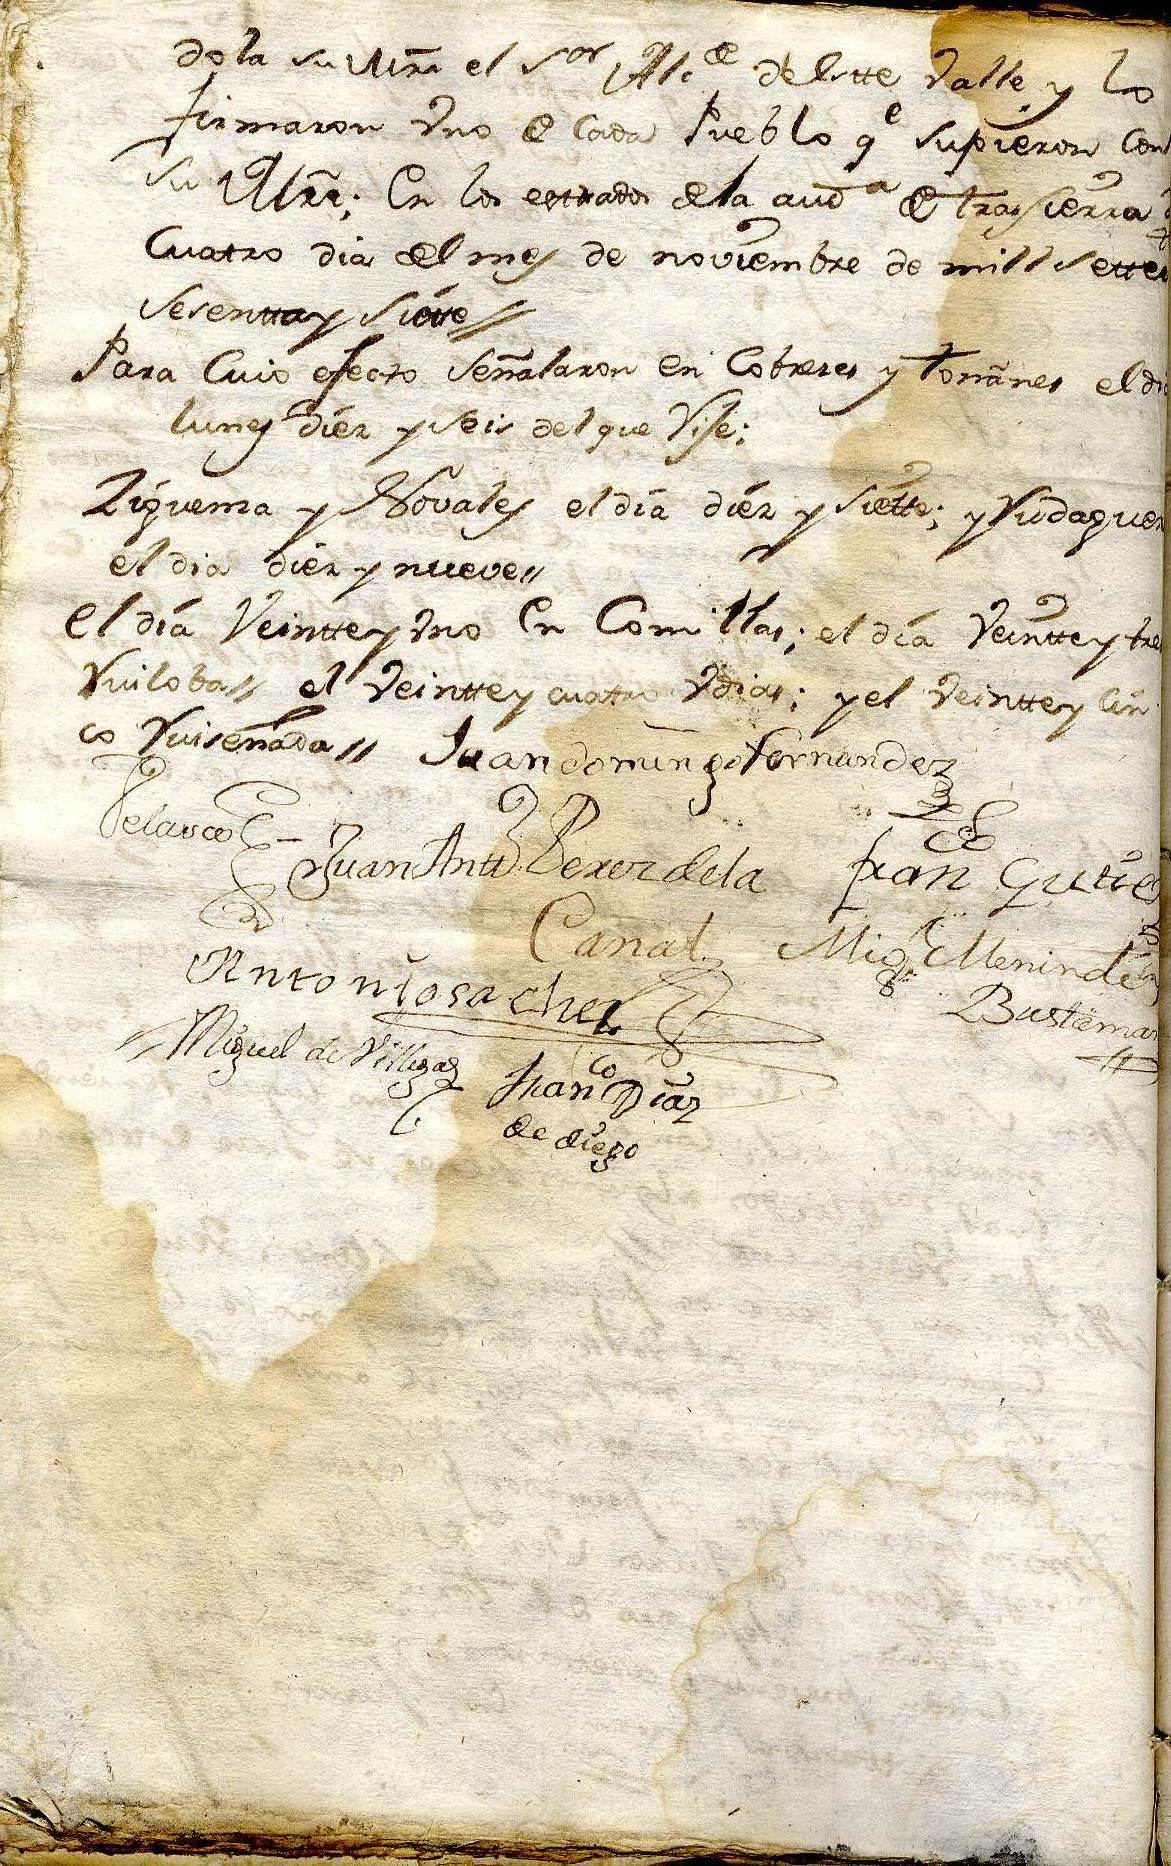 dola su Mrd el Sor Alce deleste Valle y lo
firmaron Vno de Cada Pueblo qe supieron Con
su Mrd; En los estrados dela auda de trassierra
Cuatro dia del mes de noviembre de mill Sette
sesentta y Siette//
Para Cuio efecto Señalaron en Cobreces y toñanes el di
lunes diez y seis del que Rije;
Zigüenza y Novales el día diéz y siétte; y Rudaguer
el dia diéz y nueve//
el día Veintte y Vno En Comillas; el día Veintte y tre
Ruiloba// el Veintte y cuatro Vdias; y el Veintte y Cin
co Ruiseñada// Juan domingo Fernandez
Velasco
Juan Antto Perez dela
Canal
Fran Gutie
Migl Menindez
Bustaman
Antonio sachez
Miguel de Villegas
Franco Diaz
de diego